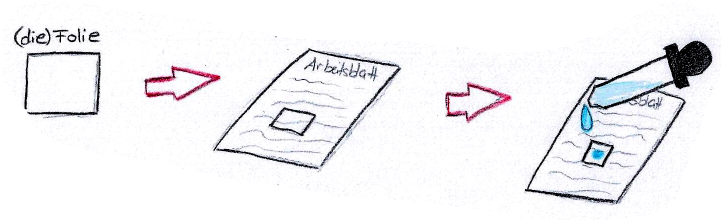 (die) Folie
Arbeitsblatt
sblatt